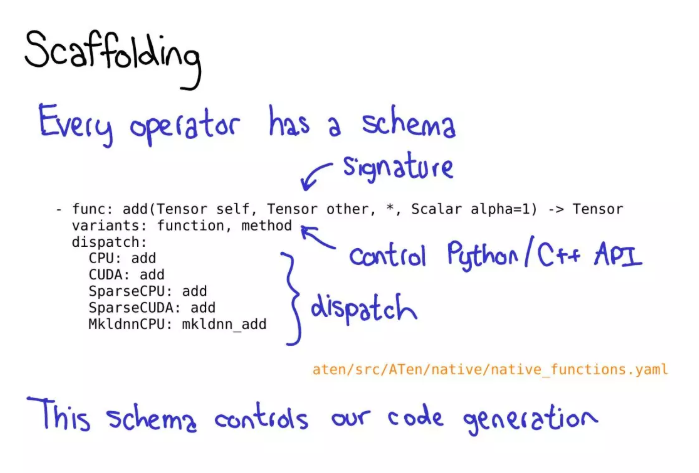 Scaffolding
Every operator has a schema
signature
- func: add(Tensor self, Tensor other, *, Scalar alpha=1) -> Tensor
variants: function, method
control Python/C++ API
dispatch:
CPU: add
CUDA: add
SparseCPU: add
SparseCUDA: add
MkldnnCPU: mkldnn_add
dispatch
aten/src/ATen/native/native_functions.yaml
This schema controls our code generation